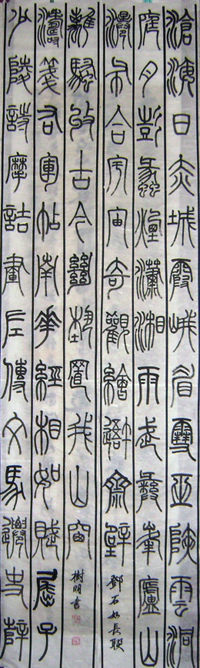 滄海日赤城霞峨眉雪巫峽雲洞
庭月彭蠡煙瀟湘雨武夷峯廬山
瀑布合宇宙奇觀繪吾齋壁
鄧石如長联
少陵詩摩詰畫左傳文馬遷史薛
濤箋右軍帖南華經相如賦屈子
離騷收古今絕藝置我山窗
樹明書